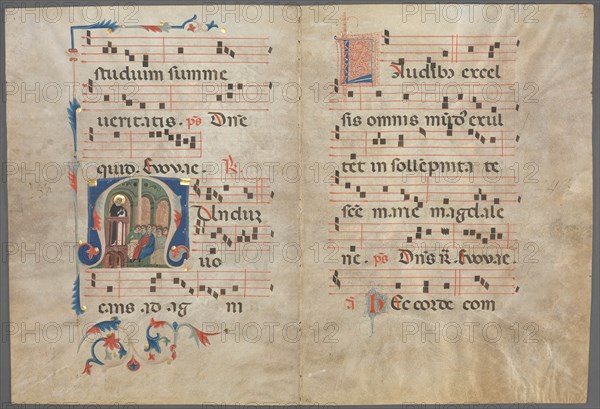 studium summe
ueritatis. ps Dn̄e
quid. Euouae. R
Munduʒ
uo
cans ad ag ni
Laudibꝰ excel
sis omnis mūdꝰ exul
tet in sollēpnita te
sc̄e marie magdale
ne. ps Dn̄s R. Euouae.
a Hec corde com